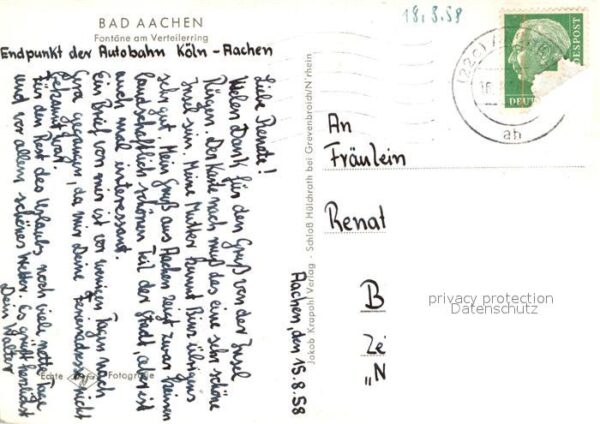 BAD AACHEN
Fontäne am Verteilerring
Endpunkt der Autobahn Köln - Aachen
18.8.58
Liebe Renate!
Vielen Dank für den Gruß von der Insel
Rügen. Der Karte nach muß das eine sehr schöne
Insel sein. Meine Mutter kennt Binz übrigens
sehr gut. Mein Gruß aus Aachen zeigt zwar keinen
landschaftlich schönen Teil der Stadt, aber ist
auch mal interessant.
Ein Brief von mir ist vor wenigen Tagen nach
Gera gegangen, da mir Deine Ferienadresse nicht
bekannt war.
Für den Rest des Urlaubs noch viele nette Tage
und vor allem schönes Wetter. Es grüßt herzlichst
Dein Walter
Echte Fotografie
Aachen, den 15.8.58
Jakob Krapohl Verlag - Schloß Hülchrath bei Grevenbroich/N'rhein
(22c)
DEUT
ESPOST
ah
An
Fräulein
Renat
B
Ze
"N
privacy protection
Datenschutz